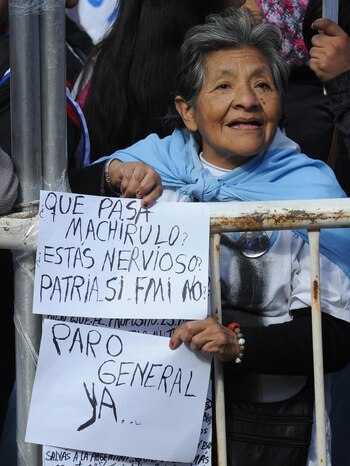 ¿QUE PASA
MACHIRULO?
¿ESTÁS NERVIOSO?
PATRIA. SI. FMI NO.
PARO
GENERAL
YA...